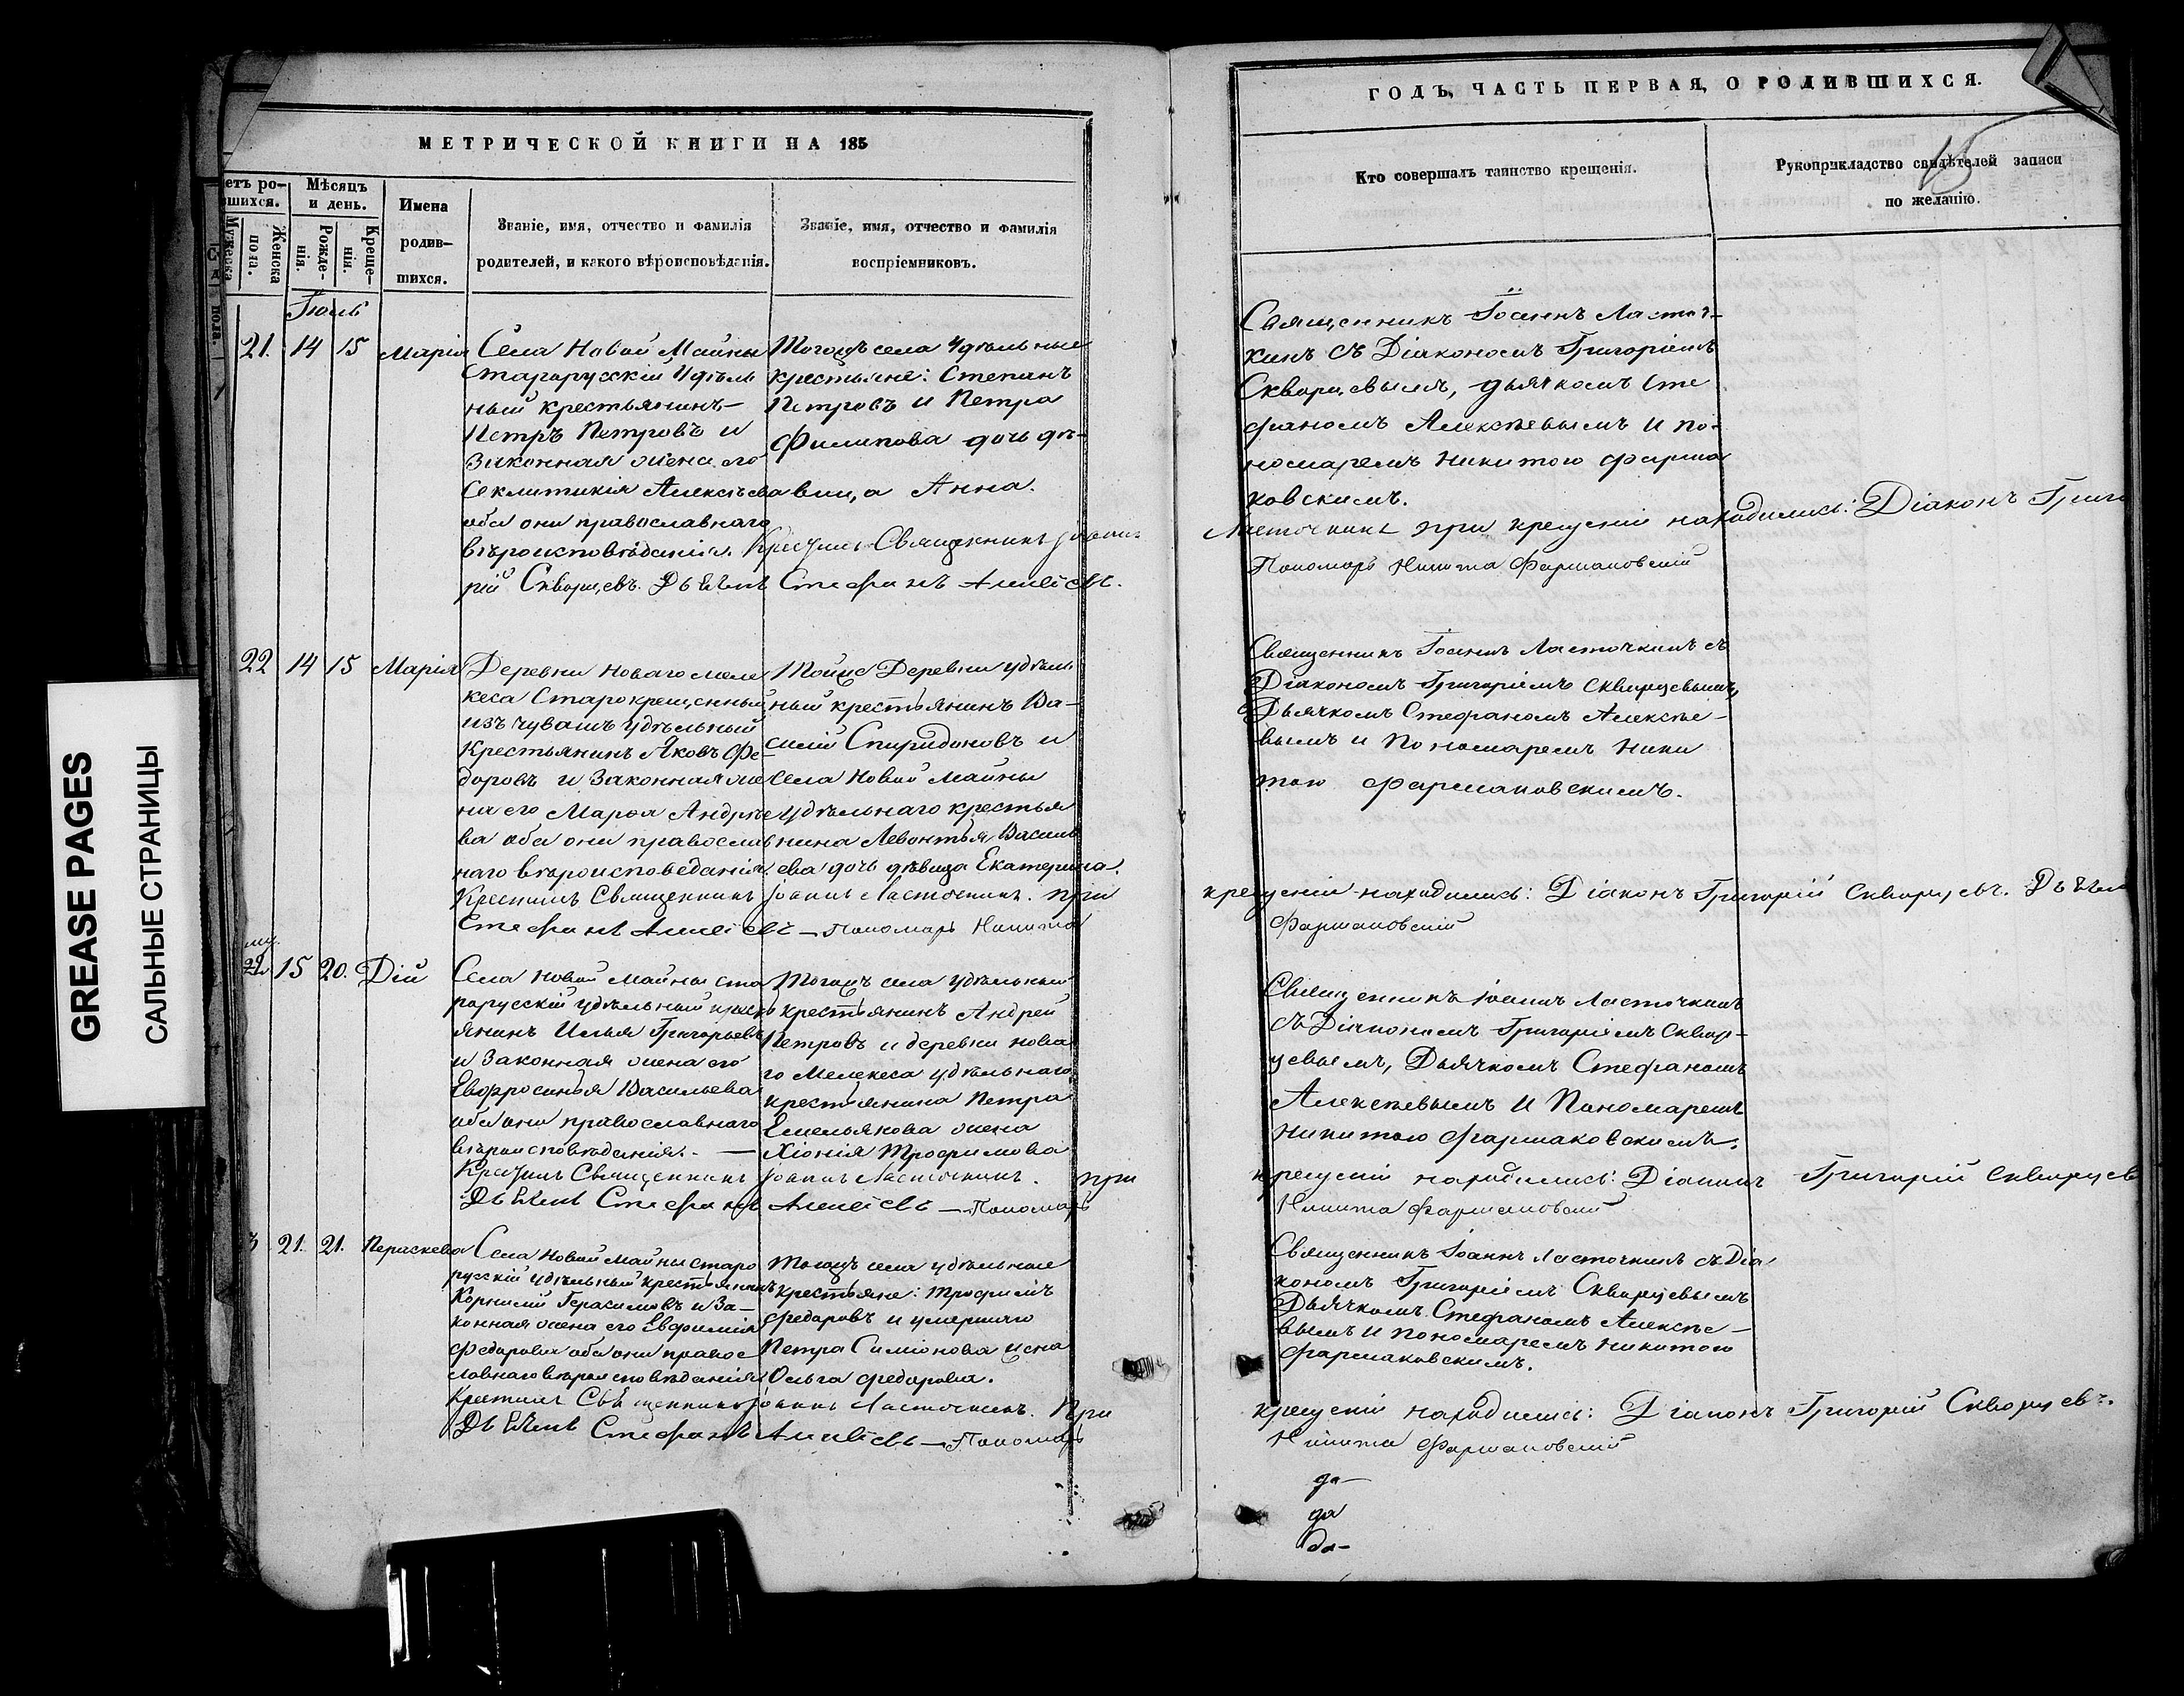 GREASE PAGES
САЛЬНЫЕ СТРАНИЦЫ
МЕТРИЧЕСКОЙ КНИГИ НА 185
етъ ро-
вшихся.
Мужеска
пола.
Женска
Мѣсяцъ
и день.
Рожде-
нія.
Креще-
нія.
Имена
родив-
шихся.
Званіе, имя, отчество и фамилія
родителей, и какого вѣроисповѣданія.
Званіе, имя, отчество и фамилія
воспріемниковъ.
Іюль
21. 14 15 Марія
Села Новой Майны
Старорусскій Удѣль
ный крестьянинъ-
Петръ Петровъ и
Законная жена его
Секлитикія Алексѣева
оба они православнаго
вѣроисповѣданія.
Тогожъ села Удѣльные
крестьяне: Степанъ
Петровъ и Петра
Филипова дочь дѣ-
вица Анна.
Крестилъ Священникъ Іоаннъ
рій Скворцевъ. Дьячекъ Стефанъ Алексѣевъ.
22 14 15 Марія
Деревни Новаго Меле
кеса Старокрещенный
изъ чувашъ Удѣльный
Крестьянинъ Яковъ Фе-
доровъ и Законная же
на его Марфа Андрѣе
ва оба они православ
наго вѣроисповеданія.
Тойже Деревни удѣль
ный крестьянинъ Ва-
силій Спиридоновъ и
Села Новой Майны
Удѣльнаго крестья
нина Левонтья Василь
ева дочь дѣвица Екатерина.
Крестилъ Священникъ Іоаннъ Ласточкинъ. При
Стефанъ Алексѣевъ — Пономарь Никита
му.
22 15 20. Дій
Села Новой Майны ста
рорусскій удѣльный крест
янинъ Илья Григорьевъ
и Законная жена его
Евфросинья Васильева
оба они православнаго
вѣроисповѣданія. —
Тогожъ села удѣльный
крестьянинъ Андрей
Петровъ и деревни нова
го Мелекеса удѣльнаго
крестьянина Петра
Емельянова жена
Хіонія Трофимова
Крестилъ Священникъ Іоаннъ Ласточкинъ. При
Дьячекъ Стефанъ Алексѣевъ — Пономарь
3 21. 21. Параскева
Села Новой Майны старо
русскій удѣльный крестьянинъ
Корнилій Герасимовъ и За-
конная жена его Евфимія
Федорова оба они правос
лавнаго вѣроисповѣданія
Тогожъ села удѣльные
крестьяне: Трофимъ
Федоровъ и умершаго
Петра Симіонова жена
Ольга Федорова.
Крестилъ Священникъ Іоаннъ Ласточкинъ. При
Дьячекъ Стефанъ Алексѣевъ — Пономарь
ГОДЪ, ЧАСТЬ ПЕРВАЯ, О РОДИВШИХСЯ.
15
Кто совершалъ таинство крещенія.
Рукоприкладство свидѣтелей записи
по желанію.
Священникъ Іоаннъ Ласточ-
кинъ съ Діакономъ Григоріемъ
Скворцевымъ, дьячкомъ Сте
фаномъ Алексѣевымъ и по-
номаремъ Никитою Фарма
ковскимъ.
Ласточкинъ при крещеніи находились: Діаконъ Григо
Пономарь Никита Фармаковскій
Священникъ Іоаннъ Ласточкинъ съ
Діакономъ Григоріемъ Скворцевымъ,
Дьячкомъ Стефаномъ Алексѣе-
вымъ и Пономаремъ Ники
тою Фармаковскимъ.
крещеніи находились: Діаконъ Григорій Скворцевъ. Дьячекъ
Фармаковскій
Священникъ Іоаннъ Ласточкинъ
Съ Діакономъ Григоріемъ Сквор-
цевымъ, Дьячкомъ Стефаномъ
Алексѣевымъ и Пономаремъ
Никитою Фармаковскимъ.
крещеніи находились: Діаконъ Григорій Скворцев
Никита Фармаковскій
Священникъ Іоаннъ Ласточкинъ съ Діа
кономъ Григоріемъ Скворцевымъ
Дьячкомъ Стефаномъ Алексѣе-
вымъ и пономаремъ Никитою
Фармаковскимъ.
крещеніи находились: Діаконъ Григорій Скворцевъ.
Никита Фармаковскій
да—
да
да—